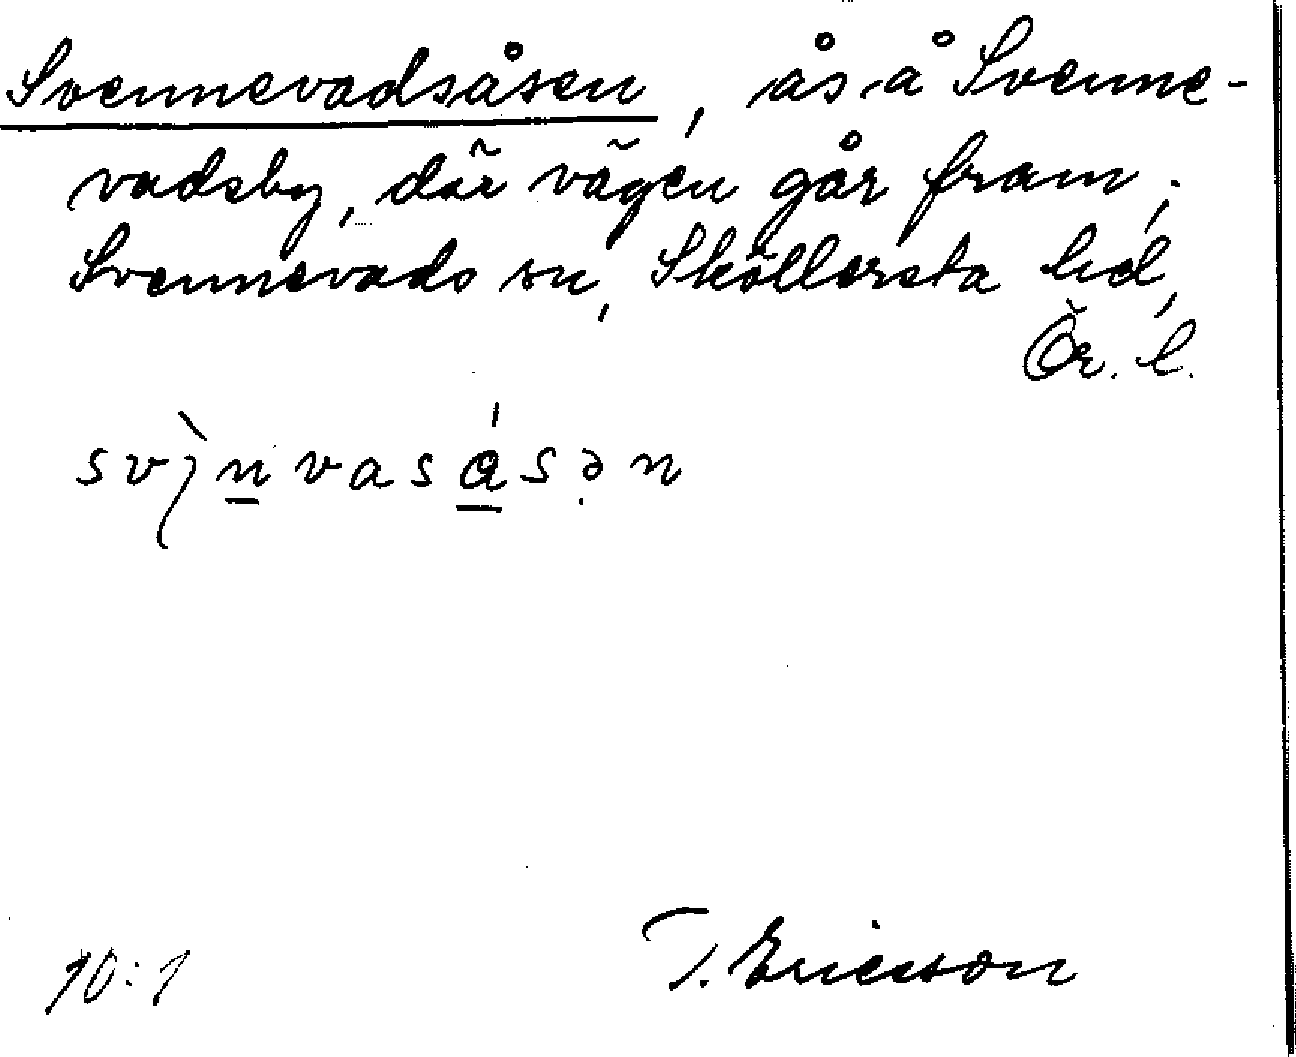 Svennevadsåsen, ås å Svenne-
vadsby, där vägen går fram;
Svennevads sn, Sköllersta hd,
Ör. l.
10:1 T. Ericsson